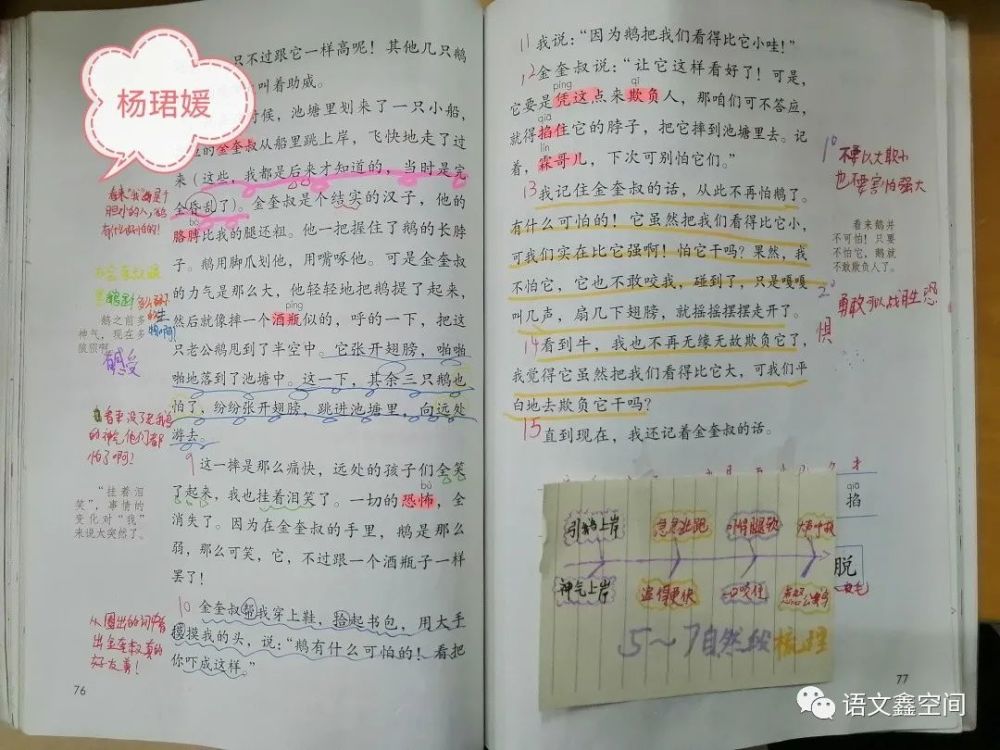 杨珺媛
只不过跟它一样高呢！其他几只鹅
叫着助威。
时候，池塘里划来了一只小船，
的金奎叔从船里跳上岸，飞快地走了过
来（这些，我都是后来才知道的，当时是完
全昏乱了）。金奎叔是个结实的汉子，他的
bó
胳膊比我的腿还粗。他一把握住了鹅的长脖
子。鹅用脚爪划他，用嘴啄他。可是金奎叔
的力气是那么大，他轻轻地把鹅提了起来，
píng
然后就像摔一个酒瓶似的，呼的一下，把这
只老公鹅甩到了半空中。它张开翅膀，啪啪
啪地落到了池塘中。这一下，其余三只鹅也
怕了，纷纷张开翅膀，跳进池塘里，向远处
游去。
9 这一摔是那么痛快，远处的孩子们全笑
bù
了起来，我也挂着泪笑了。一切的恐怖，全
消失了。因为在金奎叔的手里，鹅是那么
弱，那么可笑，它，不过跟一个酒瓶子一样
罢了！
10 金奎叔帮我穿上鞋，拾起书包，用大手
摸摸我的头，说：“鹅有什么可怕的！看把
你吓成这样。”
76
鹅之前多
神气，现在多
狼狈啊。
感受
看来没了老我鹅
的神气，他们都
怕了啊！
“挂着泪
笑”，事情的
变化对“我”
来说太突然了。
从圈出的词中看
出金奎叔真的
好友善！
11 我说：“因为鹅把我们看得比它小哇！”
12 金奎叔说：“让它这样看好了！可是，
píng qī
它要是凭这点来欺负人，那咱们可不答应，
qiā
就得掐住它的脖子，把它摔到池塘里去。记
着，霖哥儿，下次可别怕它们。”
13 我记住金奎叔的话，从此不再怕鹅了。
有什么可怕的！它虽然把我们看得比它小，
可我们实在比它强啊！怕它干吗？果然，我
不怕它，它也不敢咬我，碰到了，只是嘎嘎
叫几声，扇几下翅膀，就摇摇摆摆走开了。
14 看到牛，我也不再无缘无故欺负它了，
我觉得它虽然把我们看得比它大，可我们平
白地去欺负它干吗？
15 直到现在，我还记着金奎叔的话。
1° 不要以大取小
也不要害怕强大
看来鹅并
不可怕！只要
不怕它，鹅就
不敢欺负人了。
2° 勇敢可以战胜恐
惧
qiā
掐
脱
引鹅上岸
急忙逃跑
吓得腿软
大声呼救
神气上岸
追得更快
一口咬住
5～7自然段梳理
77
语文鑫空间